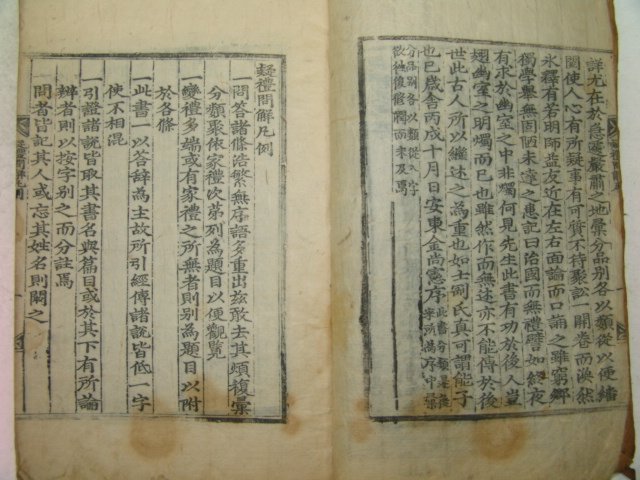 詳尤在於急遽嚴肅之地彙分品別各以類從以便繙
閱使人心有所疑事有可質不待聚訟一開卷而渙然
氷釋有若明師益友近在左右面論而口誦之雖窮鄉
獨學擧無固陋未達之患記曰治國而無禮譬如終夜
有求於幽室之中非燭何見先生此書有功於後人豈
翅幽室之明燭而已也雖然作而無述亦不能傳於後
世此古人所以繼述之爲重也如士剛氏真可謂能子
也已歲舍丙戌十月日安東金尙憲序此書分類
分品別各以類從八字
欲待後修釐潤而未及焉
疑禮問解凡例
一問答諸條浩繁無序語多重出玆敢去其煩複彙
分類聚依家禮次第列爲題目以便觀覽
一變禮多端或有家禮之所無者則別爲題目以附
於各條
一此書一以答辞為主故所引經傳諸說皆低一字
使不相混
一引證諸說皆取其書名與篇目或於其下有所論
辨者則以按字別之而分註焉
問者皆記其人或忘其姓名則闕之